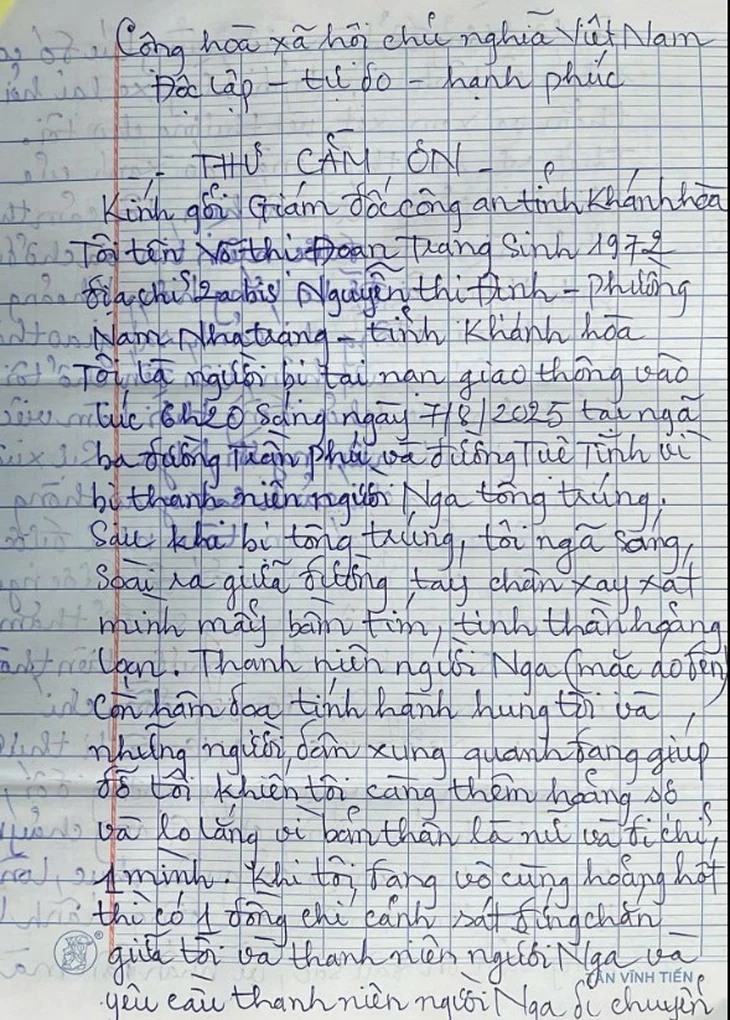 Cộng hoà xã hội chủ nghĩa Việt Nam
Độc lập - tự do - hạnh phúc
- THƯ CẢM ƠN -
Kính gởi Giám đốc công an tỉnh Khánh hòa
Tôi tên Võ thị Đoan Trang Sinh 1972
địa chỉ 2a bis Nguyễn thị Định - Phường
Nam Nha trang - tỉnh Khánh hòa
Tôi là người bị tai nạn giao thông vào
lúc 6h20 sáng ngày 7/8/2025 tại ngã
ba đường Trần Phú và đường Tuệ Tĩnh vì
bị thanh niên người Nga tông trúng.
Sau khi bị tông trúng, tôi ngã sang,
soài ra giữa đường, tay chân xay xát
mình mẩy bầm tím, tinh thần hoảng
loạn. Thanh niên người Nga (mặc áo đen)
còn hăm dọa tính hành hung tôi và
những người dân xung quanh đang giúp
đỡ tôi khiến tôi càng thêm hoảng sợ
và lo lắng vì bản thân là nữ và đi chỉ
1 mình. Khi tôi đang vô cùng hoảng hốt
thì có 1 đồng chí cảnh sát đứng chắn
giữa tôi và thanh niên người Nga và
yêu cầu thanh niên người Nga di chuyển
TÂN VĨNH TIẾN